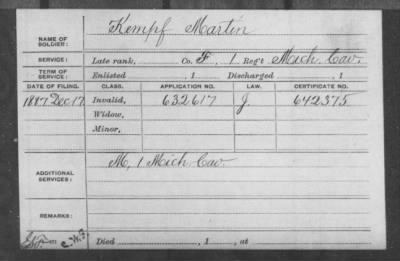 NAME OF SOLDIER: Kempf Martin
SERVICE: Late rank, Co. F, 1 Reg't Mich. Cav.
TERM OF SERVICE: Enlisted , 1 Discharged , 1
DATE OF FILING. CLASS. APPLICATION NO. LAW. CERTIFICATE NO.
1887 Dec 17 Invalid, 632617 J. 642375
Widow,
Minor,
ADDITIONAL SERVICES: M, 1 Mich Cav.
REMARKS:
Died , 1 , at